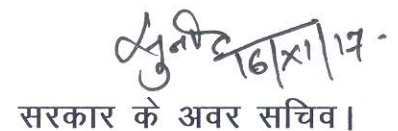 16/XI/17.
सरकार के अवर सचिव।